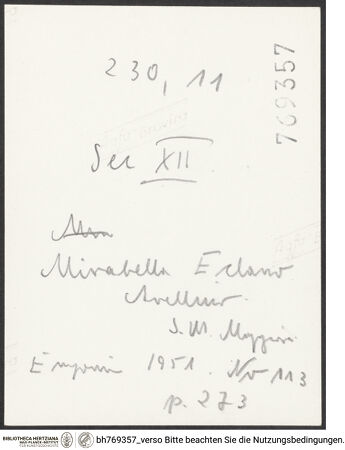 230, 11
769357
Sec XII
Mirabella Eclano
Avellino.
S. M. Maggiore
Emporium 1951. No 113
p. 273
BIBLIOTHECA HERTZIANA
MAX-PLANCK-INSTITUT
FÜR KUNSTGESCHICHTE
bh769357_verso Bitte beachten Sie die Nutzungsbedingungen.